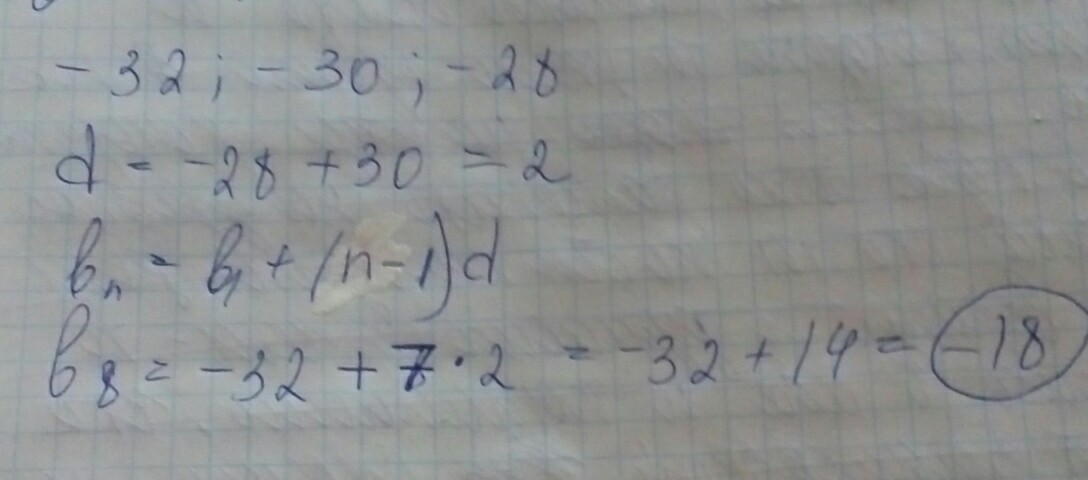 -32; -30; -28
d = -28 + 30 = 2
bₙ = b₁ + (n-1)d
b₈ = -32 + 7·2 = -32 + 14 = -18